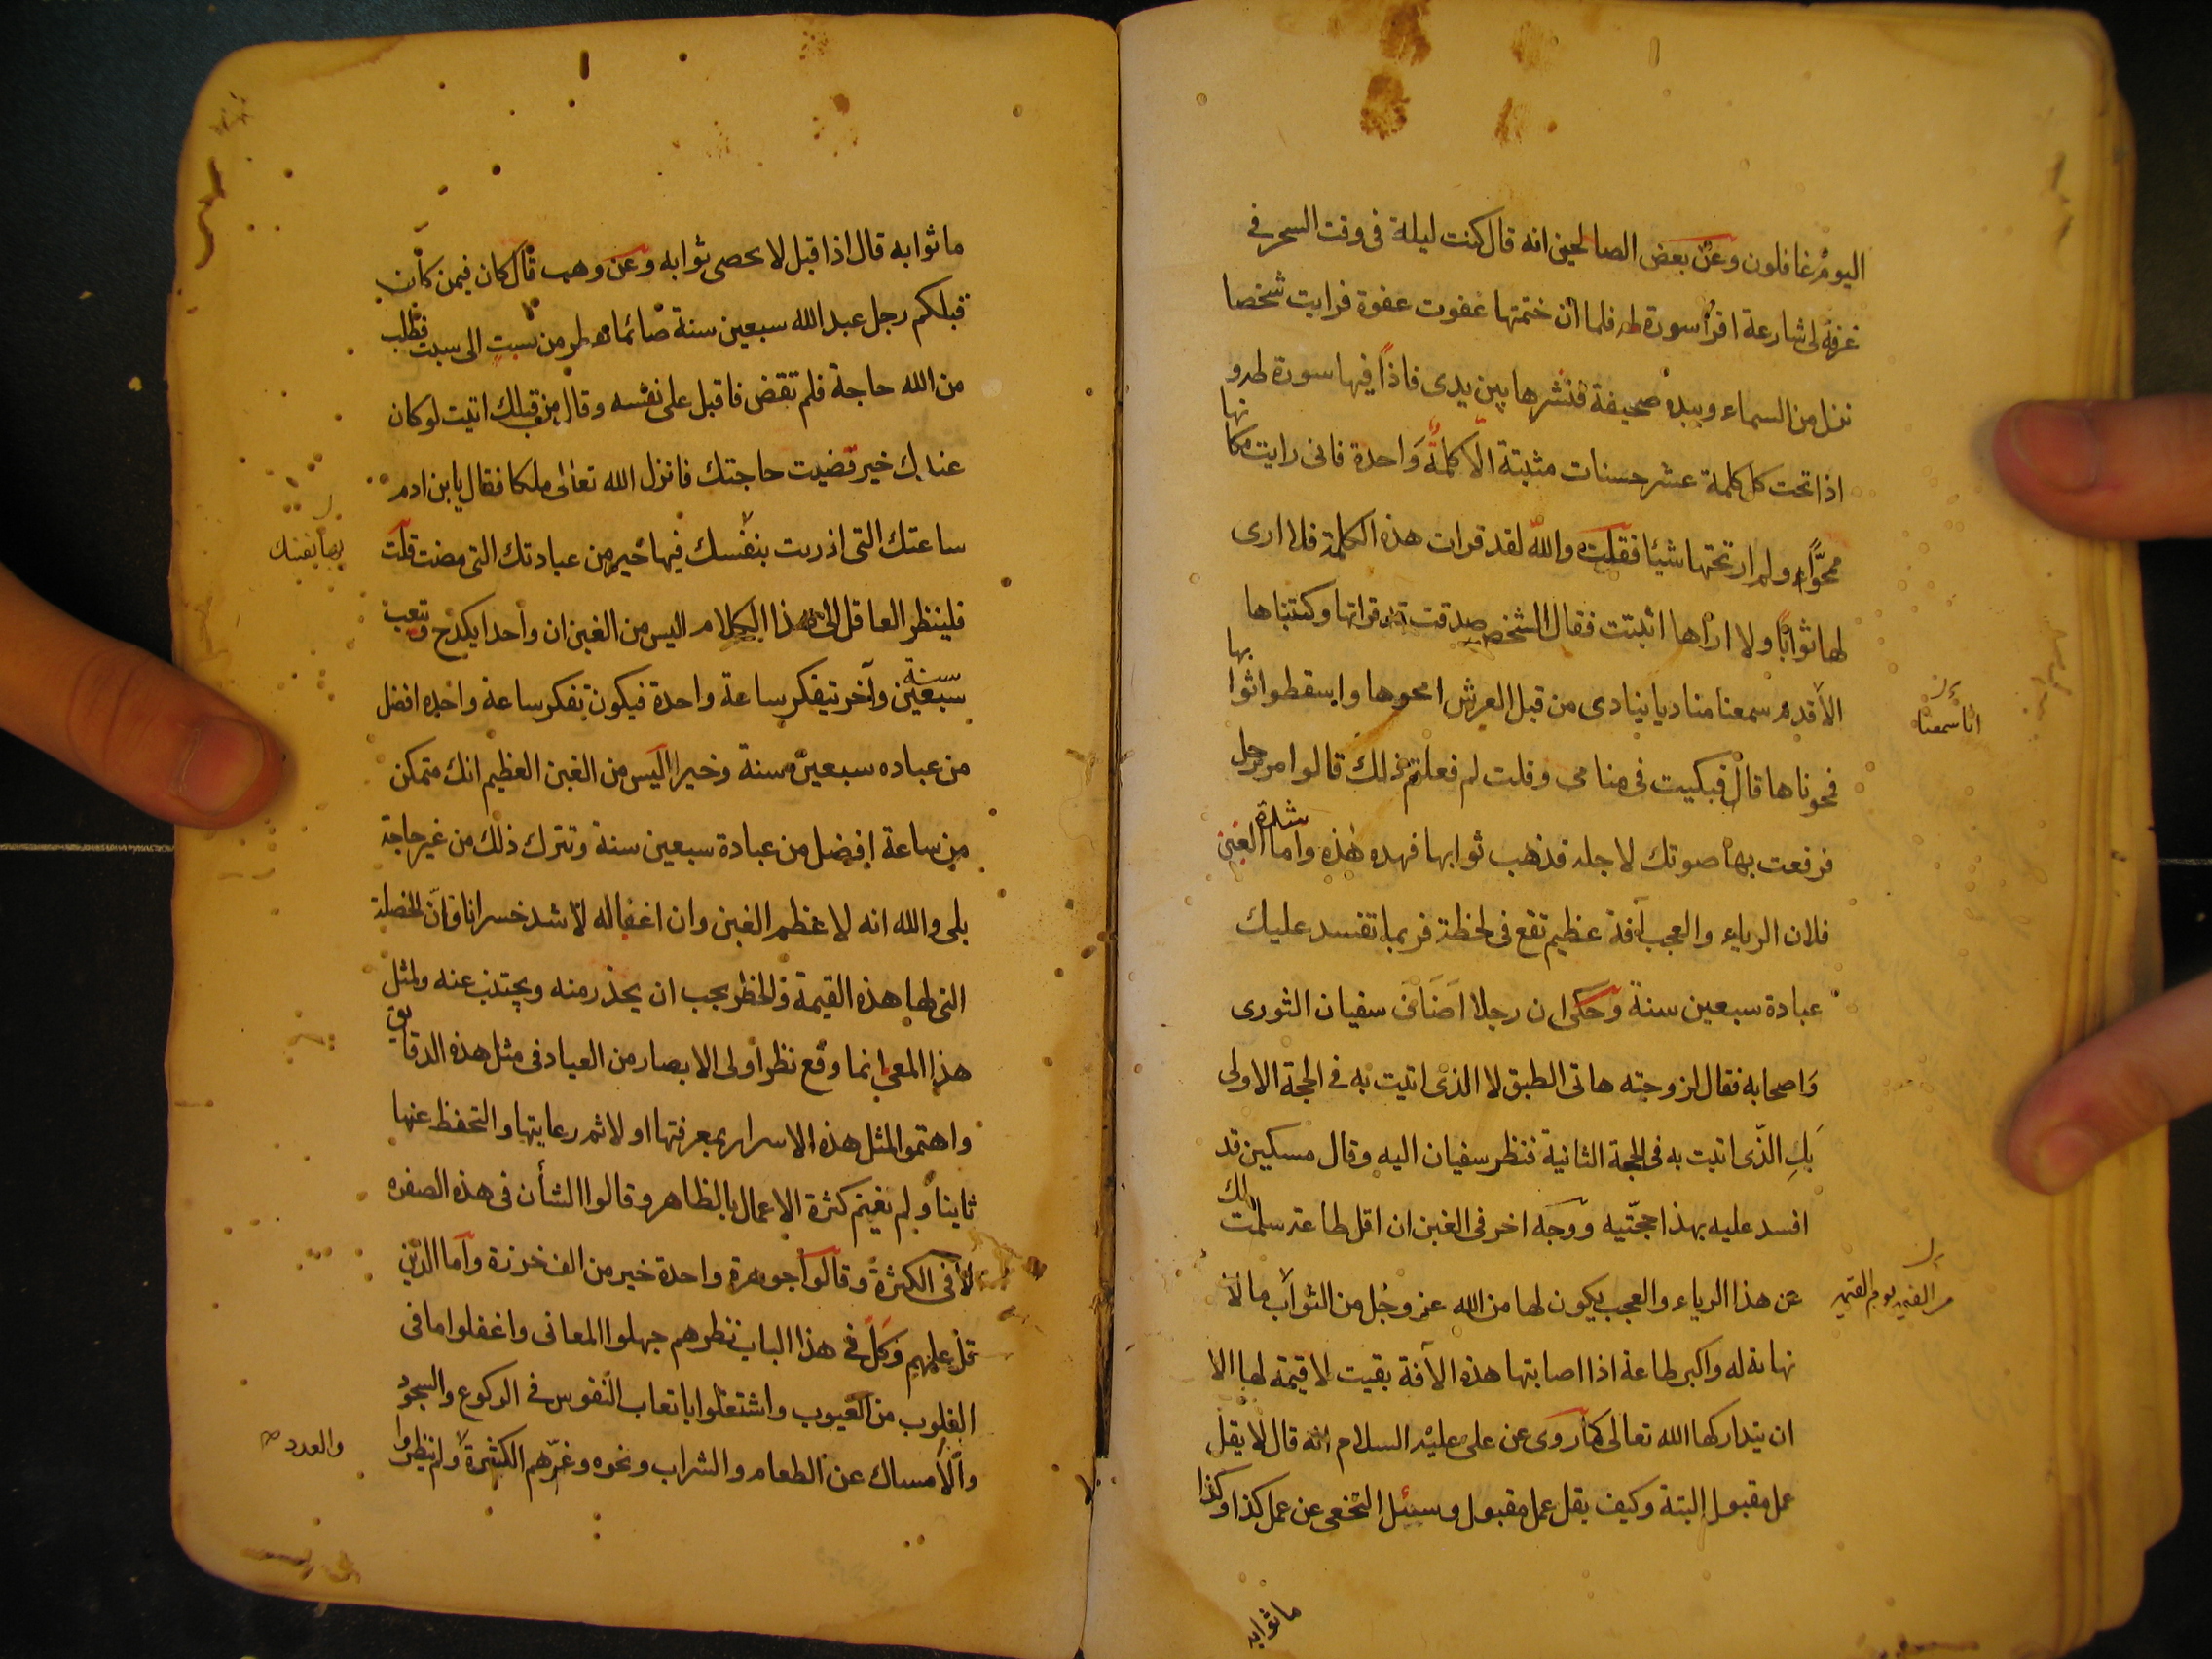 اليوم غافلون وعن بعض الصالحين انه قال كنت ليلة فى وقت السحر فى
غرفة لى شارعة اقرأ سورة طه فلما ان ختمتها غفوت غفوة فرايت شخصا
نزل من السماء وبيده صحيفة فنشرها بين يدى فاذا فيها سورة طه و
اذا تحت كل كلمة عشر حسنات مثبتة الا كلمة واحدة فانى رايت مكانها
ممحوا ولم ار تحتها شيئا فقلت والله لقد قرات هذه الكلمة فلا ارى
لها ثوابا ولا اراها اثبتت فقال الشخص صدقت قد قراتها وكتبناها
الا قد سمعنا مناديا ينادى من قبل العرش امحوها واسقطوا ثوابها
انا سمعنا
فمحوناها قال فبكيت فى منامى وقلت لم فعلتم ذلك قالوا مر رجل
فرفعت بها صوتك لاجله فذهب ثوابها فهده هذه واما شدة الغبن
فلان الرياء والعجب آفة عظيم تقع فى لحظة فربما تفسد عليك
عبادة سبعين سنة وحكى ان رجلا اضاف سفيان الثورى
واصحابه فقال لزوجته هاتى الطبق لا الذى اتيت به فى الحجة الاولى
بل الذى اتيت به فى الحجة الثانية فنظر سفيان اليه وقال مسكين قد
افسد عليه بهذا حجتيه ووجه اخر فى الغبن ان اقل طاعة سلمت لك
عن هذا الرياء والعجب يكون لها من الله عز وجل من الثواب ما لا
نهاية له واكبر طاعة اذا اصابتها هذه الآفة بقيت لا قيمة لها الا
ان يتداركها الله تعالى كما روى عن على عليه السلام انه قال لا يقل
عمل مقبول البتة وكيف يقل عمل مقبول وسئل النخعى عن عمل كذا وكذا
ما ثوابه
ما ثوابه قال اذا قبل لا يحصى ثوابه وعن وهب قال كان فيمن كان
قبلكم رجل عبد الله سبعين سنة صائما يفطر من سبت الى سبت فطلب
من الله حاجة فلم تقض فاقبل على نفسه وقال من قبلك اتيت لو كان
عندك خير قضيت حاجتك فانزل الله تعالى ملكا فقال يا بن ادم
ساعتك التى ازريت بنفسك فيها خير من عبادتك التى مضت قلت
فلينظر العاقل الى هذا الكلام اليس من الغبن ان واحدا يكدح ويتعب
سبعين سنة وآخر يتفكر ساعة واحدة فيكون تفكر ساعة واحده افضل
من عباده سبعين سنة وخيرا اليس من الغبن العظيم انك متمكن
من ساعة افضل من عبادة سبعين سنة وتترك ذلك من غير حاجة
بلى والله انه لاعظم الغبن وان اغفاله لاشد خسرانا وان الخصلة
التى لها هذه القيمة والخطر يجب ان يحذر منه ويجتنب عنه ولمثل
هذا المعنى انما وقع نظر اولى الابصار من العباد فى مثل هذه الدقايق
واهتموا لمثل هذه الاسرار بمعرفتها اولا ثم رعايتها والتحفظ عنها
ثانيا ولم يغنم كثرة الاعمال بالظاهر وقالوا الشأن فى هذه الصفوه
لا فى الكثرة وقالوا جوهرة واحدة خير من الف خرزة واما الذين
علمهم وكل فى هذا الباب نظرهم جهلوا المعانى واغفلوا ما فى
القلوب من العيوب واشتغلوا باتعاب النفوس فى الركوع والسجود
والامساك عن الطعام والشراب ونحوه وغرهم الكثرة ولم ينظروا
والعدد صح